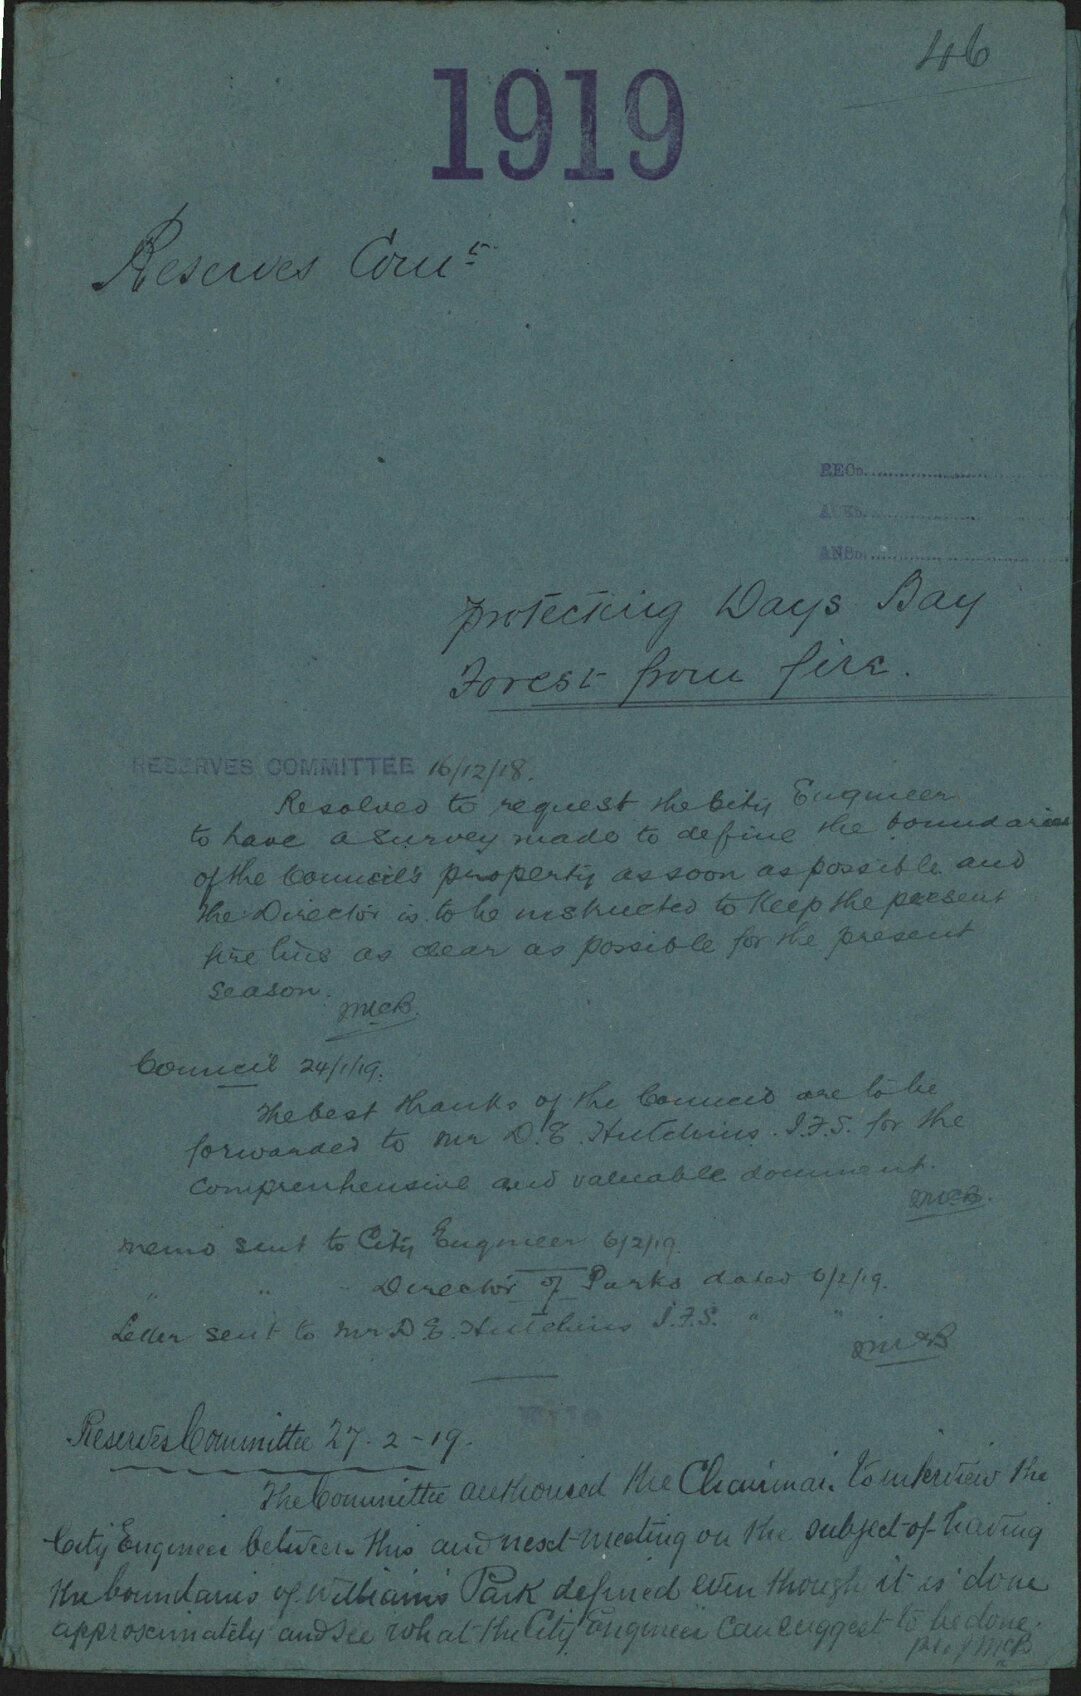 46
1919
Reserves Comee
RECD.
ACKD.
ANSD.
Protecting Days Bay
Forest from fire.
RESERVES COMMITTEE 16/12/18.
Resolved to request the City Engineer
to have a survey made to define the boundaries
of the Council's property as soon as possible and
the Director is to be instructed to keep the present
fire line as clear as possible for the present
season.
McB.
Council 24/1/19.
The best thanks of the Council are to be
forwarded to Mr D.E. Hutchins. I.F.S. for the
comprenhensive and valuable document.
McB.
memo sent to City Engineer 6/2/19
" " Director of Parks dated 6/2/19.
Letter sent to Mr D E. Hutchins I.F.S. " "
McB
File
Reserves Committee 27-2-19.
The Committee authorised the Chairman to interview the
City Engineer between this and next meeting on the subject of having
the boundaries of Williams Park defined even though it is done
approximately and see what the City Engineer can suggest to be done.
McB